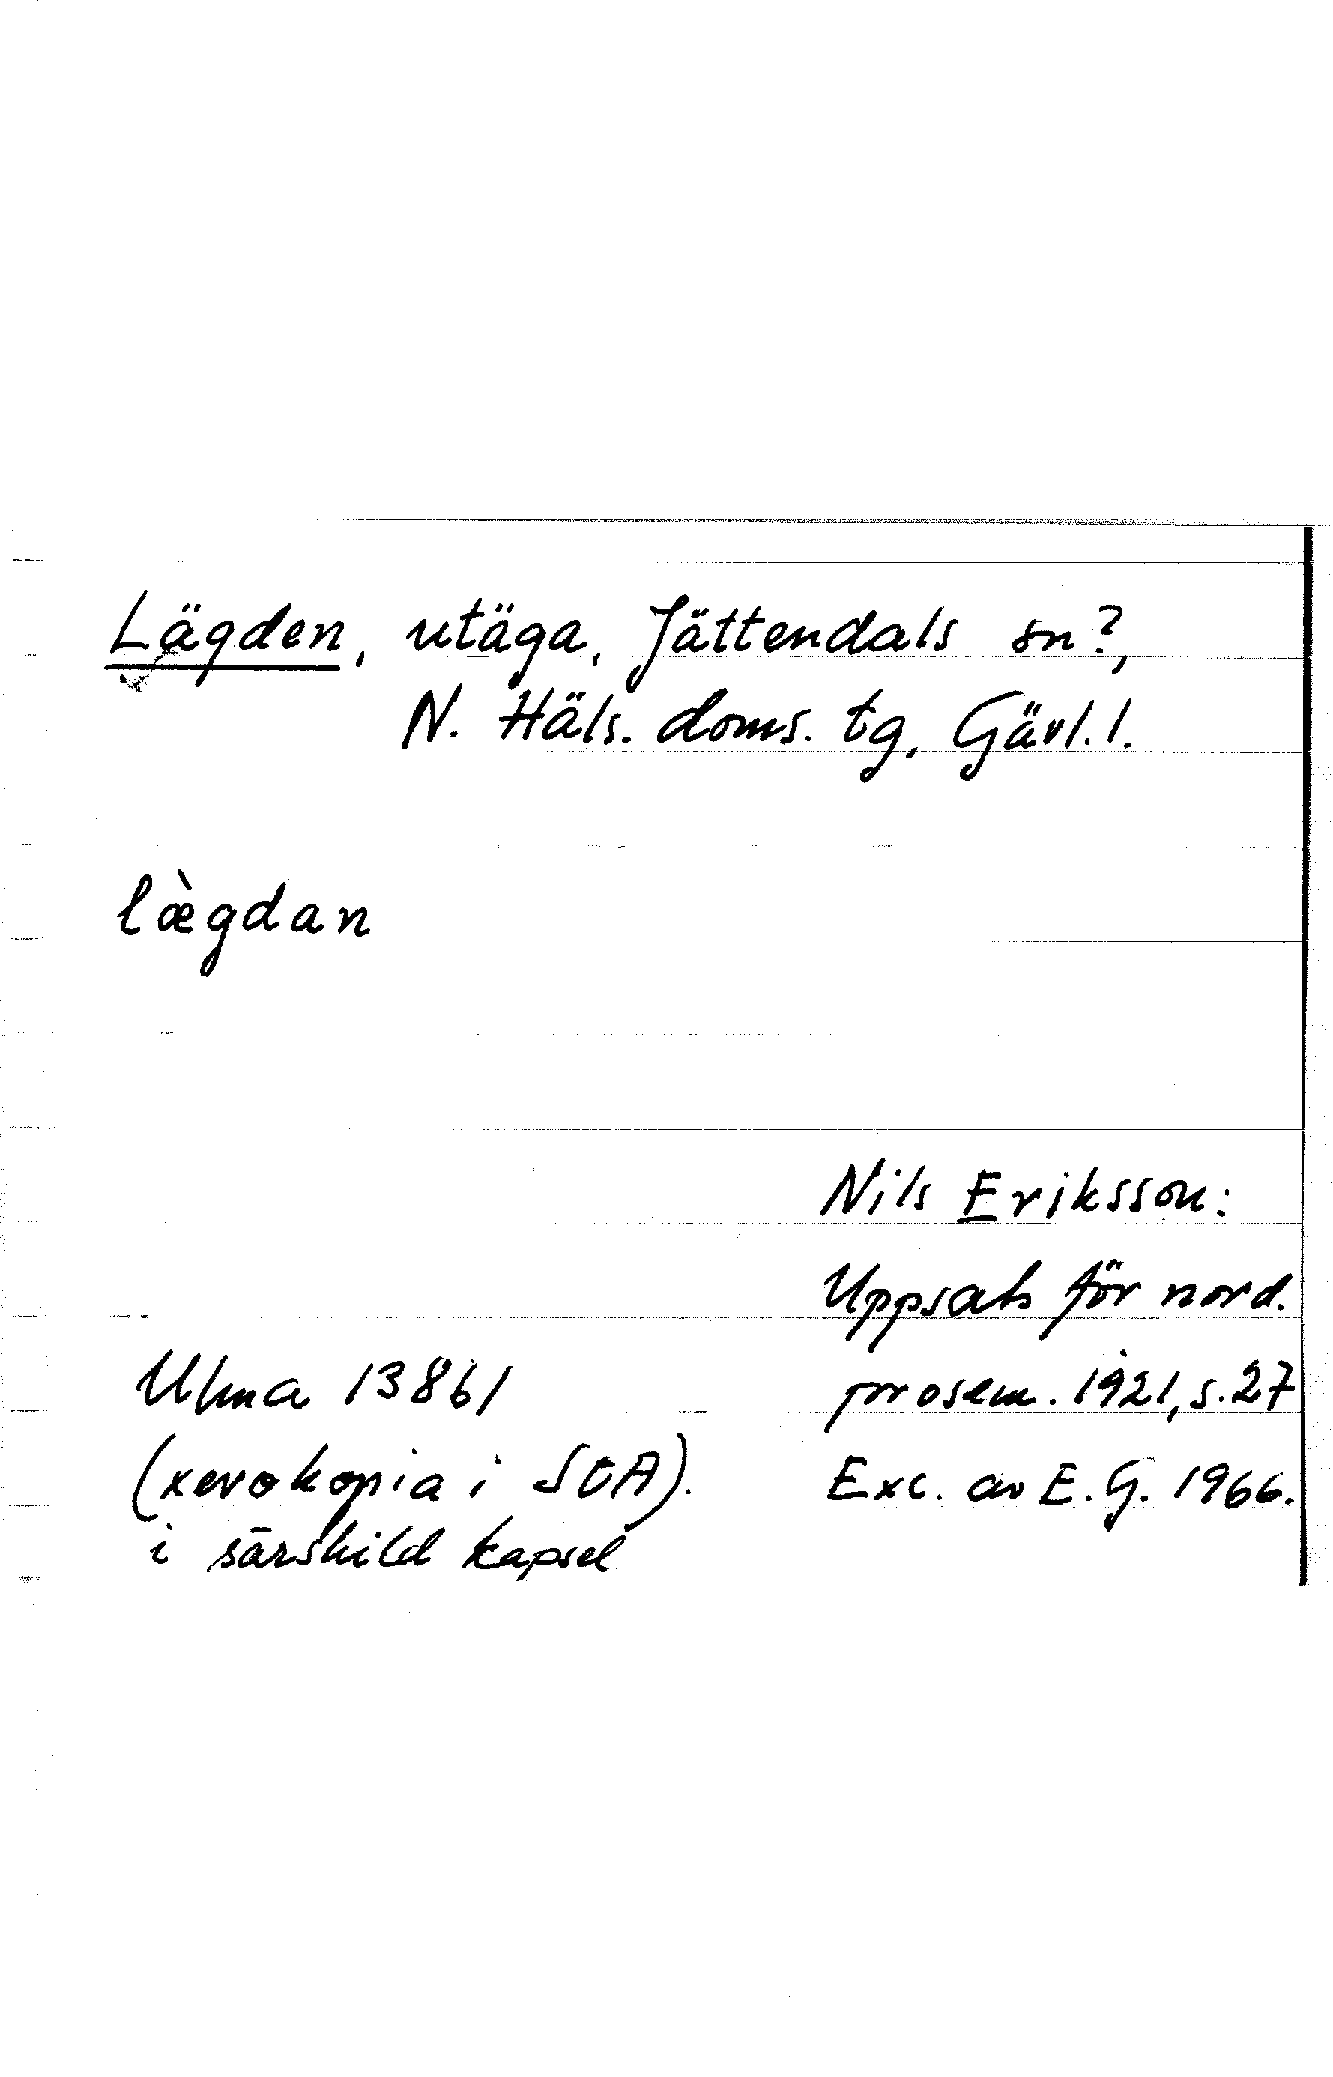 Lägden, utäga, Jättendals sn?,
N. Häls. doms. tg, Gävl. l.
læ̀gdan
Nils Eriksson:
Uppsats för nord.
prosem. 1921, s. 27
Exc. av E. G. 1966.
Ulma 13861
(xerokopia i SOA).
i särskild kapsel